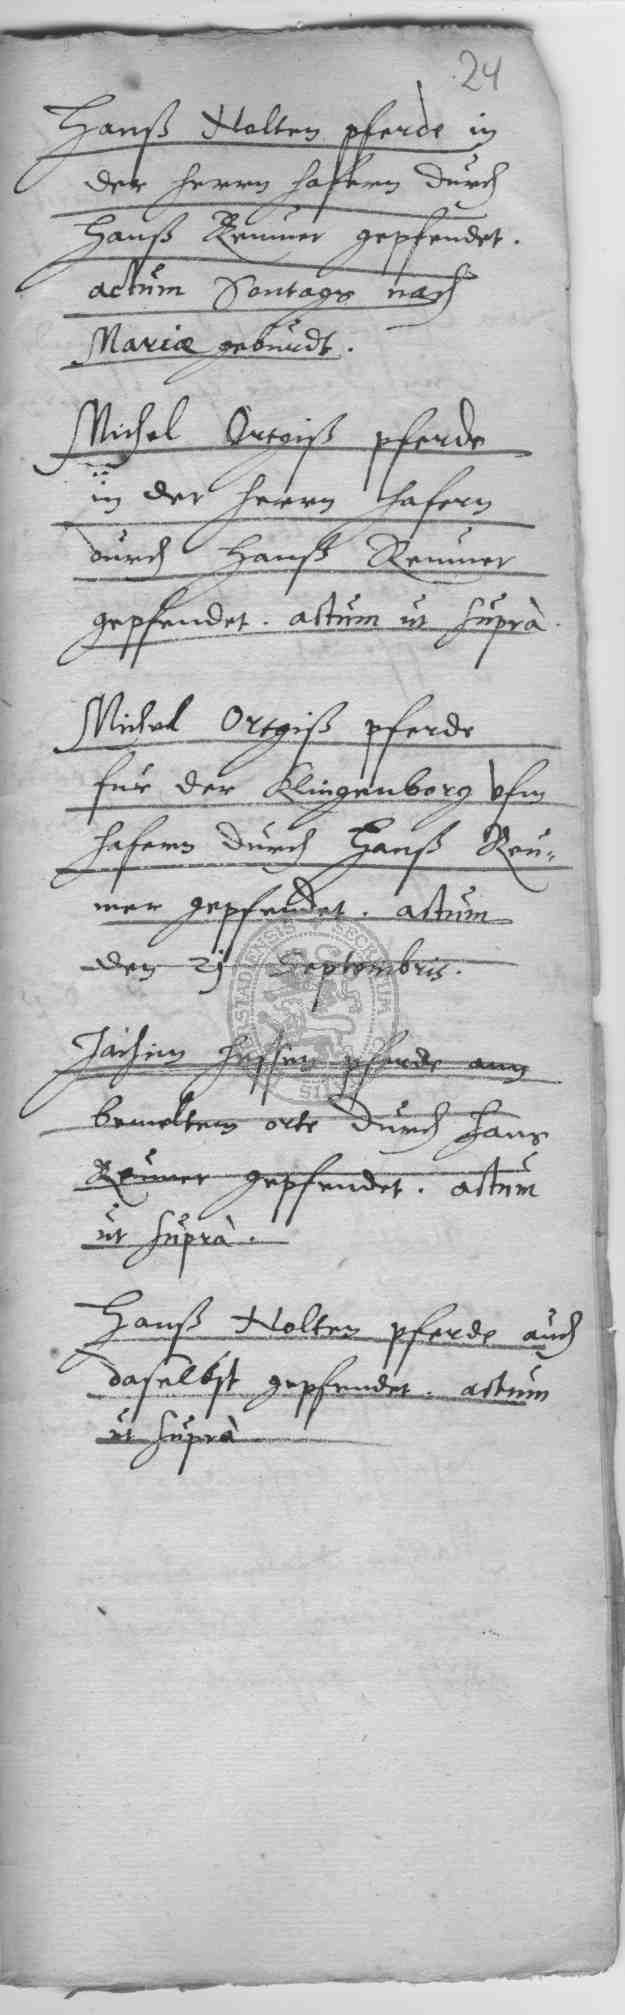 24
Hanß Nolten pferde in
der herrn hafern durch
Hanß Remmer gepfendet.
actum Sontags nach
Mariæ geburdt.
Michel Ortgiß pferde
in der herrn hafern
durch Hanß Remmer
gepfendet. actum ut suprà.
Michel Ortgiß pferde
fur der Klingenborg vfm
hafern durch Hanß Rem-
mer gepfendet. actum
den 21 Septembris.
Jachim pferde am
bemeltem orte durch Hans
Remmer gepfendet. actum
ut suprà.
Hanß Nolten pferde auch
daselbst gepfendet. actum
ut suprà